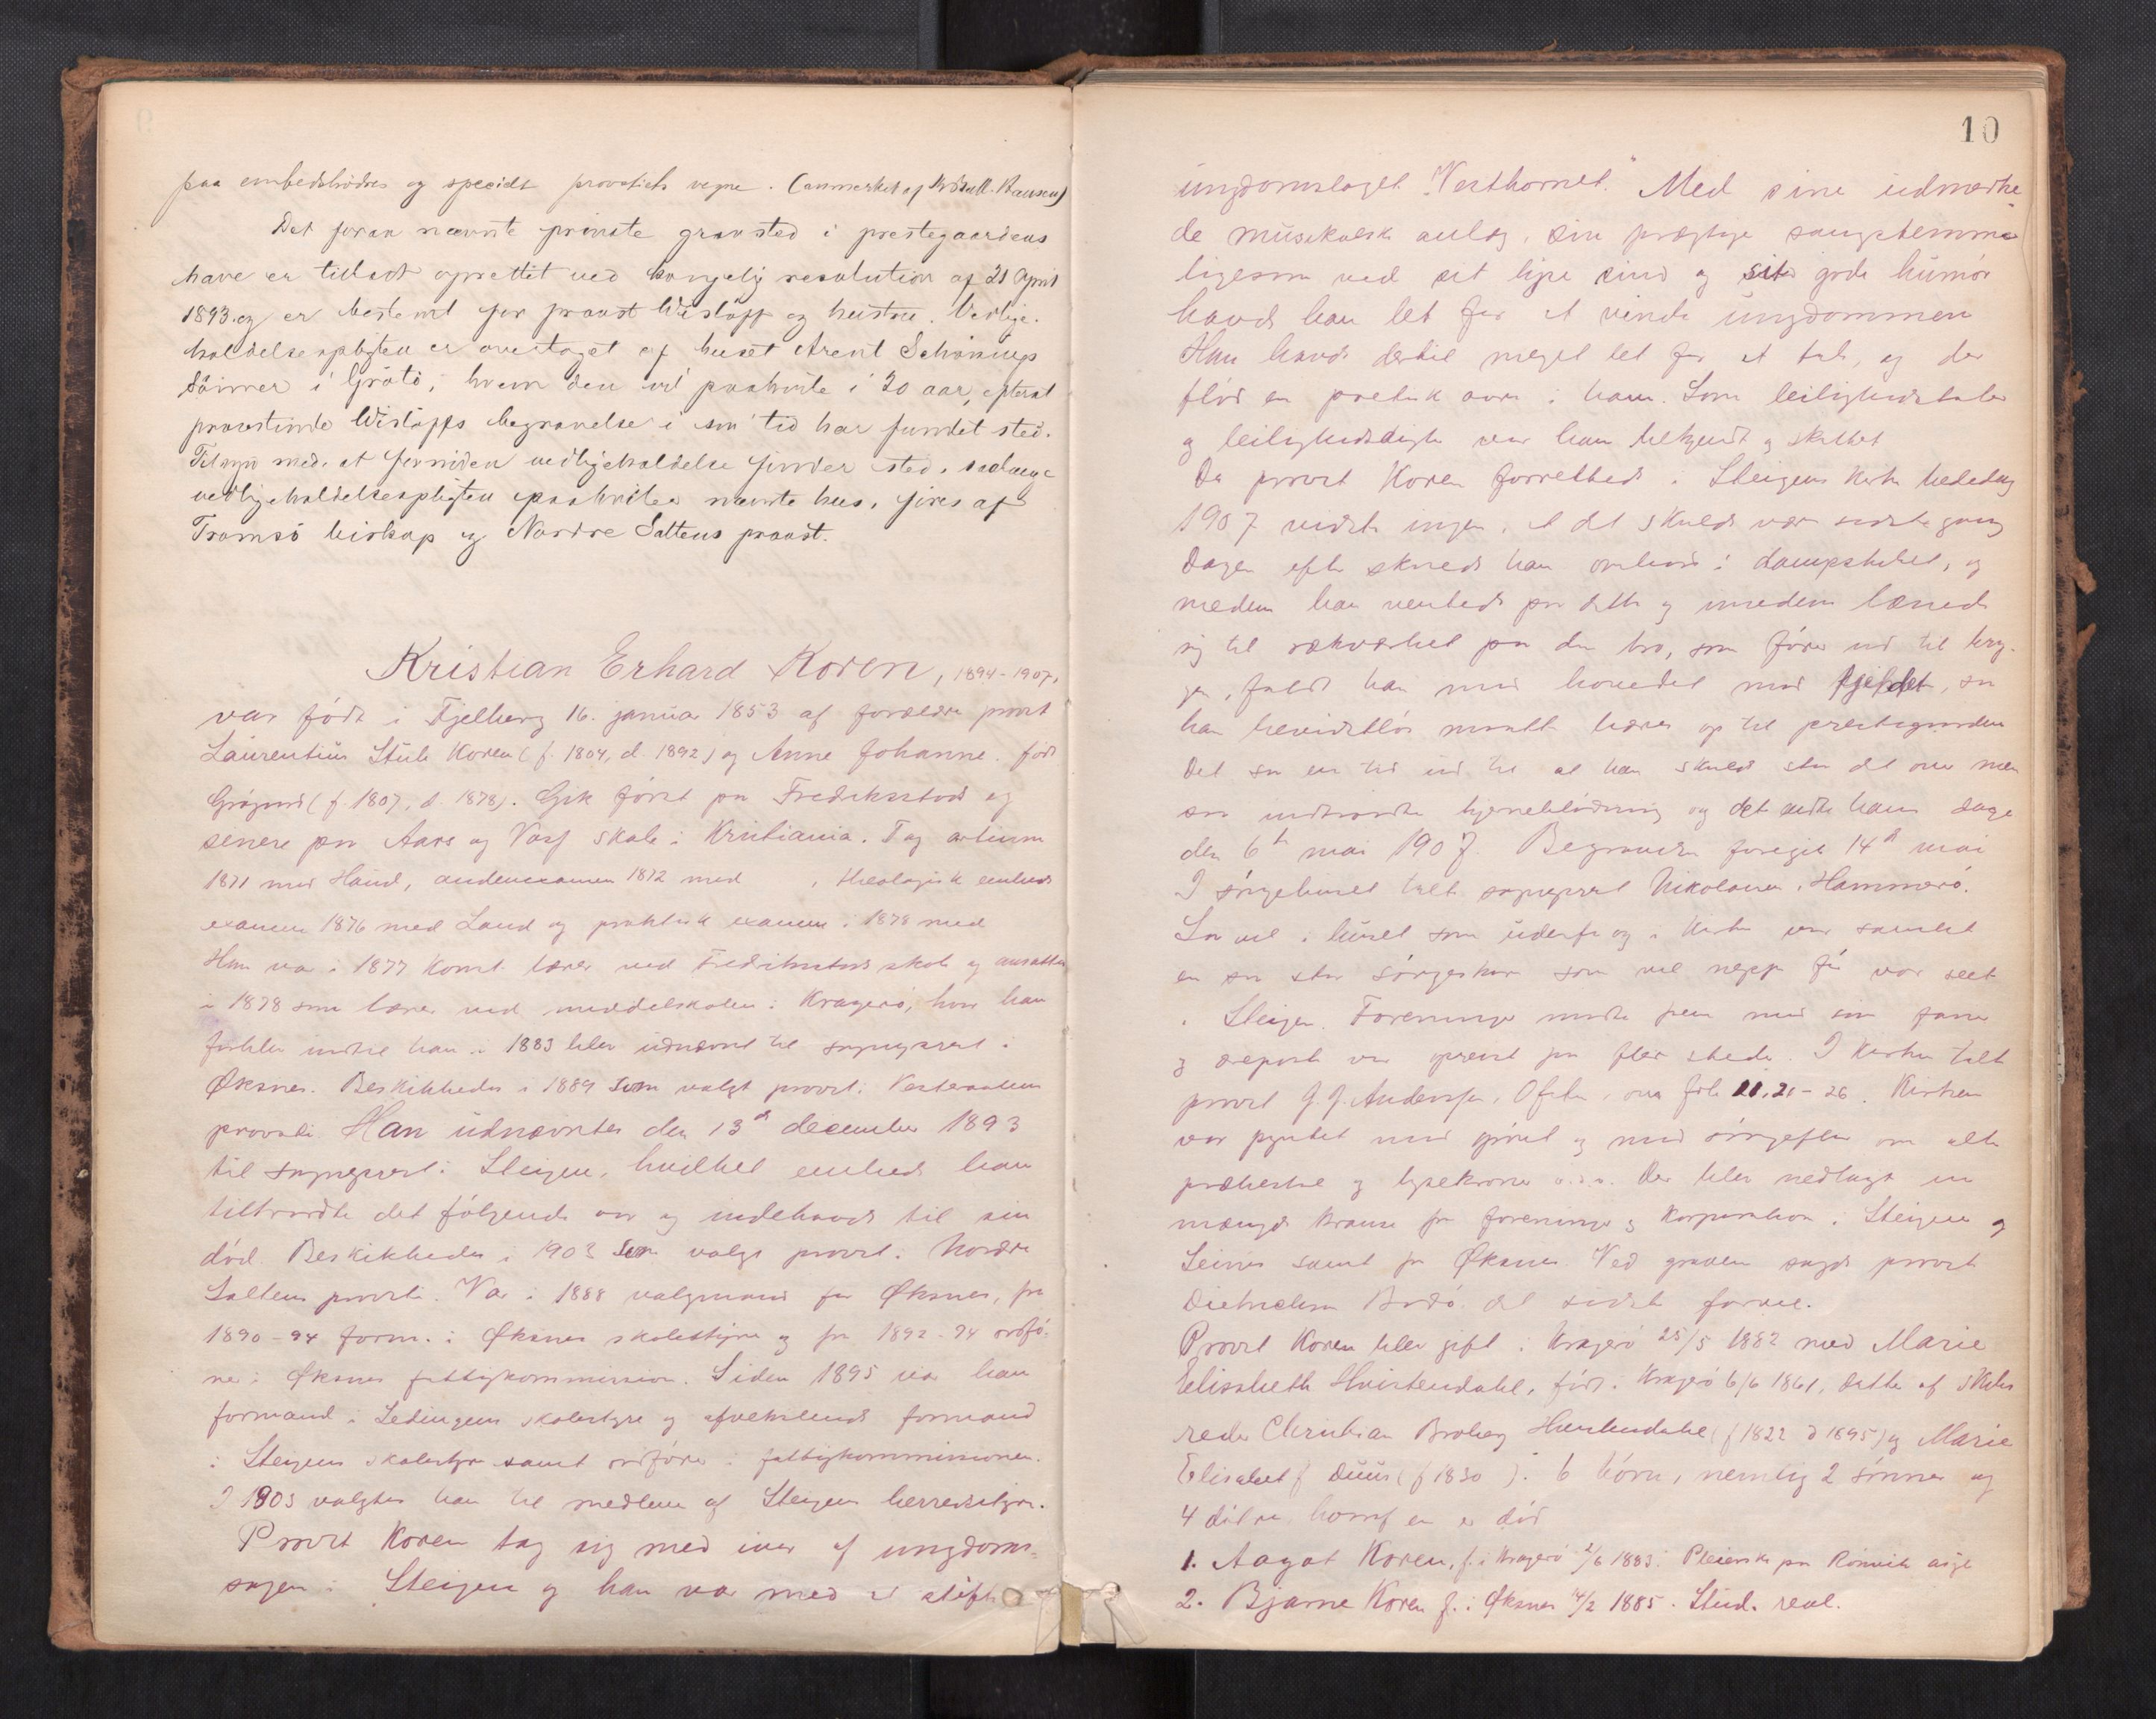 paa embedsbrødres og specielt provstiets vegne. (anmerket af
Det foran nævnte private gravsted i prestegaardens
have er tilladt oprettet ved kongelig resolution af 21 April
1893 og er bestemt for provst Wisløff og hustru. Vedlige-
holdelsespligten er overtaget af huset Arent Schønings
Sønner i Grøtø, hvem den vil paahvile i 20 aar, efterat
provstinde Wisløffs begravelse i sin tid har fundet sted.
Tilsyn med, at fornøden vedligeholdelse finder sted, saalænge
vedligeholdelsespligten paahviler nævnte hus, føres af
Tromsø biskop og Nordre Saltens provst.
Kristian Erhard Koren, 1894-1907,
var født i Fjelberg 16. januar 1853 af forældre provst
Laurentius Stub Koren (f. 1804, d. 1892) og Anne Johanne, født
(f. 1807, d. 1878). Gik først paa Fredriksstads og
senere paa Aars og Voss skole i Kristiania. Tog artium
1871 med Haud, andenexamen 1872 med , theologisk embeds
examen 1876 med Laud og praktisk examen i 1878 med
Han var i 1877 konst. lærer ved Fredrikstads skole og ansattes
i 1878 som lærer ved middelskolen i Kragerø, hvor han
forblev indtil han i 1883 blev udnævnt til sogneprest i
Øksnes. Beskikkedes i 1889 som valgt provst i Vesteraalens
provsti. Han udnævntes den 13de december 1893
til sogneprest i Steigen, hvilket embede han
tiltraadte det følgende aar og indehavde til sin
død. Beskikkedes i 1903 som valgt provst i Nordre
Saltens provsti. Var i 1888 valgmand for Øksnes, fra
1890-94 form. i Øksnes skolestyre og fra 1892-94 ordfø-
rer i Øksnes fattigkommission. Siden 1895 var han
formand i Ledingens skolestyre og afvekslende formand
i Steigens skolestyre samt ordfører i fattigkommissionen.
I 1903 valgtes han til medlem af Steigens herredsstyre.
Provst Koren tog sig med iver af ungdoms-
sagen i Steigen og han var med at stifte
10
ungdomslaget "Vesthornet." Med sine udmærke-
de musikalske anlæg, sin prægtige sangstemme
ligesom ved sit lyse sind og sit gode humør
havde han let for at vinde ungdommen
Han havde dertil meget let for at tale, og der
flød en poetisk aare i ham. Som leilighedstaler
og leilighedsdigter var han velkjendt og skattet
Da provst Koren forrettede i Steigens kirke bededag
1907 vidste ingen, at det skulde være sidste gang
Dagen efter skulde han ombord i dampskibet, og
medens han ventede paa dette og imedens lænede
sig til rækværket paa den bro, som fører ud til bryg-
gen, faldt han med hovedet mod fjeldet, saa
han bevidstløs maatte bæres op til prestegaarden
Det saa en tid ud til at han skulde staa det over men
saa indtraadte hjerneblødning og det endte hans dage
den 6te mai 1907. Begravelsen foregik 14de mai
I sørgehuset talte sogneprest Nikolaisen, Hammerø.
Saavel i huset som udenfor og i kirken var samlet
en saa stor sørgeskare som vel neppe før var seet
i Steigen. Foreninger mødte frem med sin fane
og æreport var opreist paa flere steder. I kirken talte
provst J. J. Andersen, Ofoten, over Joh. 11,21-26. Kirken
var pyntet med grønt og med sørgeflor om alter
prækestol og lysekroner o.s.v. Der blev nedlagt en
mængde kranse fra foreninger og korporationer i Steigen og
Leines samt fra Øksnes. Ved graven sagde provst
Bodø det sidste farvel.
Provst Koren blev gift i Kragerø 25/5 1882 med Marie
Elisabeth Hvistendahl, født i Kragerø 6/6 1861, datter af skibs
reder Christian Broberg Hvistendahl (f 1822 d 1895) og Marie
Elisabet f Duus (f 1830 ). 6 børn, nemlig 2 sønner og
4 døtre, hvoraf en er død
1. Aagot Koren, f. i Kragerø 2/6 1883. Pleierske paa asyl
2. Bjarne Koren f. i Øksnes 14/2 1885. Stud. real.